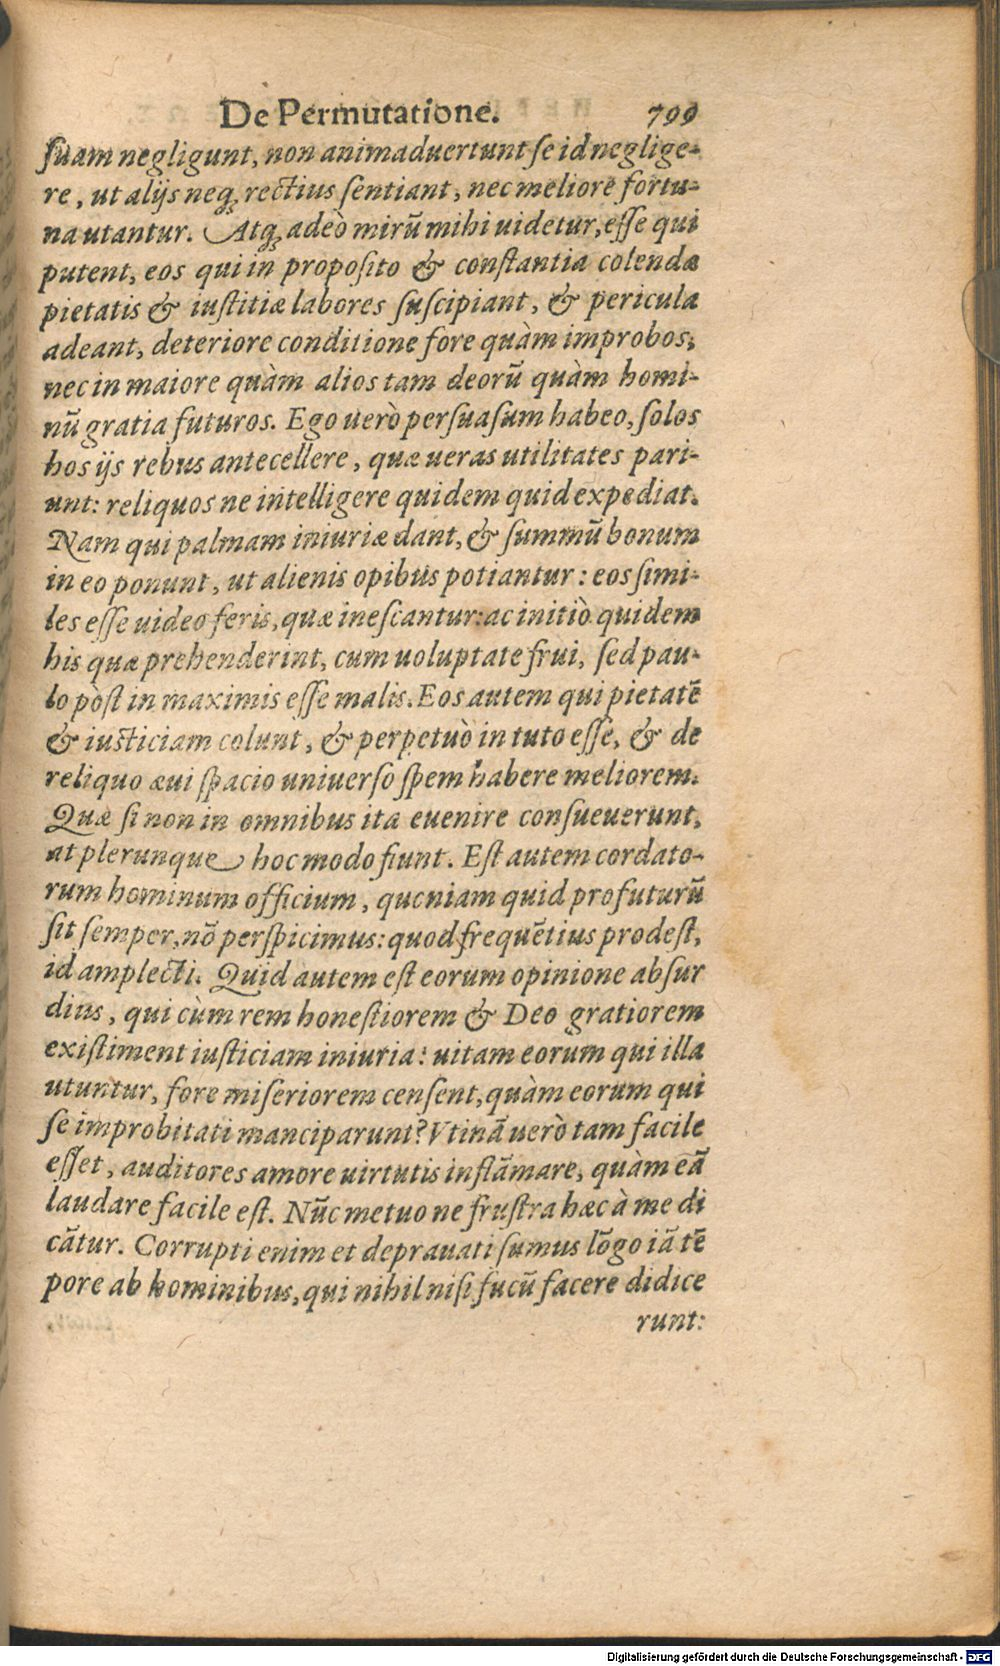 De Permutatione. 799
suam negligunt, non animaduertunt se id neglige-
re, ut alijs neq; rectius sentiant, nec meliore fortu-
na utantur. Atq; adeò mirū mihi uidetur, esse qui
putent, eos qui in proposito & constantia colendæ
pietatis & iustitiæ labores suscipiant, & pericula
adeant, deteriore conditione fore quàm improbos,
nec in maiore quàm alios tam deorū quàm homi-
nū gratia futuros. Ego uerò persuasum habeo, solos
hos ijs rebus antecellere, quæ ueras utilitates pari-
unt: reliquos ne intelligere quidem quid expediat.
Nam qui palmam iniuriæ dant, & summū bonum
in eo ponunt, ut alienis opibus potiantur: eos simi-
les esse uideo feris, quæ inescantur: ac initiò quidem
his quæ prehenderint, cum uoluptate frui, sed pau-
lo pòst in maximis esse malis. Eos autem qui pietatē
& iusticiam colunt, & perpetuò in tuto esse, & de
reliquo æui spacio uniuerso spem habere meliorem.
Quæ si non in omnibus ita euenire consueuerunt,
at plerunque hoc modo fiunt. Est autem cordato-
rum hominum officium, quoniam quid profuturū
sit semper, nō perspicimus: quod frequētius prodest,
id amplecti. Quid autem est eorum opinione absur
dius, qui cùm rem honestiorem & Deo gratiorem
existiment iusticiam iniuria: uitam eorum qui illa
utuntur, fore miseriorem censent, quàm eorum qui
se improbitati manciparunt? Vtinā uerò tam facile
esset, auditores amore uirtutis inflāmare, quàm eā
laudare facile est. Nūc metuo ne frustra hæc à me di
cātur. Corrupti enim et deprauati sumus lōgo iā tē
pore ab hominibus, qui nihil nisi fucū facere didice
runt:
Digitalisierung gefördert durch die Deutsche Forschungsgemeinschaft - DFG